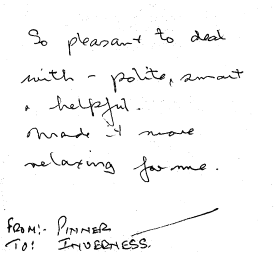 So pleasant to deal
with - polite, smart
& helpful.
Made it more
relaxing for me.
FROM:- PINNER
TO: INVERNESS.